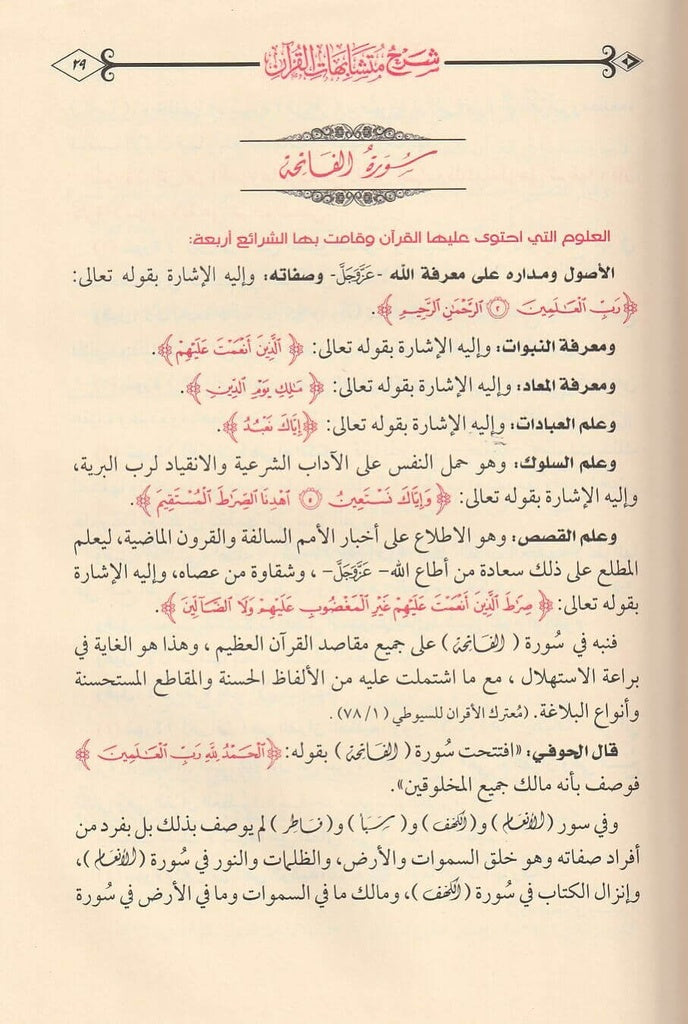 شرح متشابهات القرآن
٢٩
سُورَةُ الفَاتِحَة
العلوم التي احتوى عليها القرآن وقامت بها الشرائع أربعة:
الأصول ومداره على معرفة الله -عَزَّوَجَلَّ- وصفاته: وإليه الإشارة بقوله تعالى:
﴿رَبِّ الْعَـٰلَمِينَ ۝٢ الرَّحْمَـٰنِ الرَّحِيمِ﴾.
ومعرفة النبوات: وإليه الإشارة بقوله تعالى: ﴿الَّذِينَ أَنْعَمْتَ عَلَيْهِمْ﴾.
ومعرفة المعاد: وإليه الإشارة بقوله تعالى: ﴿مَـٰلِكِ يَوْمِ الدِّينِ﴾.
وعلم العبادات: وإليه الإشارة بقوله تعالى: ﴿إِيَّاكَ نَعْبُدُ﴾.
وعلم السلوك: وهو حمل النفس على الآداب الشرعية والانقياد لرب البرية،
وإليه الإشارة بقوله تعالى: ﴿وَإِيَّاكَ نَسْتَعِينُ ۝٥ اهْدِنَا الصِّرَٰطَ الْمُسْتَقِيمَ﴾.
وعلم القصص: وهو الاطلاع على أخبار الأمم السالفة والقرون الماضية، ليعلم
المطلع على ذلك سعادة من أطاع الله- عَزَّوَجَلَّ- ، وشقاوة من عصاه، وإليه الإشارة
بقوله تعالى: ﴿صِرَٰطَ الَّذِينَ أَنْعَمْتَ عَلَيْهِمْ غَيْرِ الْمَغْضُوبِ عَلَيْهِمْ وَلَا الضَّآلِّينَ﴾.
فنبه في سُورة ( الفَاتِحَة ) على جميع مقاصد القرآن العظيم ، وهذا هو الغاية في
براعة الاستهلال ، مع ما اشتملت عليه من الألفاظ الحسنة والمقاطع المستحسنة
وأنواع البلاغة. (مُعترك الأقران للسيوطي (٧٨/١) .
قال الحوفي: «افتتحت سُورة ( الفَاتِحَة ) بقوله: ﴿الْحَمْدُ لِلَّهِ رَبِّ الْعَـٰلَمِينَ﴾
فوصف بأنه مالك جميع المخلوقين».
وفي سور (الأنعَام ) و( الكَهف ) و( سَبَأ ) و( فَاطِر ) لم يوصف بذلك بل بفرد من
أفراد صفاته وهو خلق السموات والأرض، والظلمات والنور في سُورة (الأنعَام )،
وإنزال الكتاب في سُورة ( الكَهف )، ومالك ما في السموات وما في الأرض في سُورة